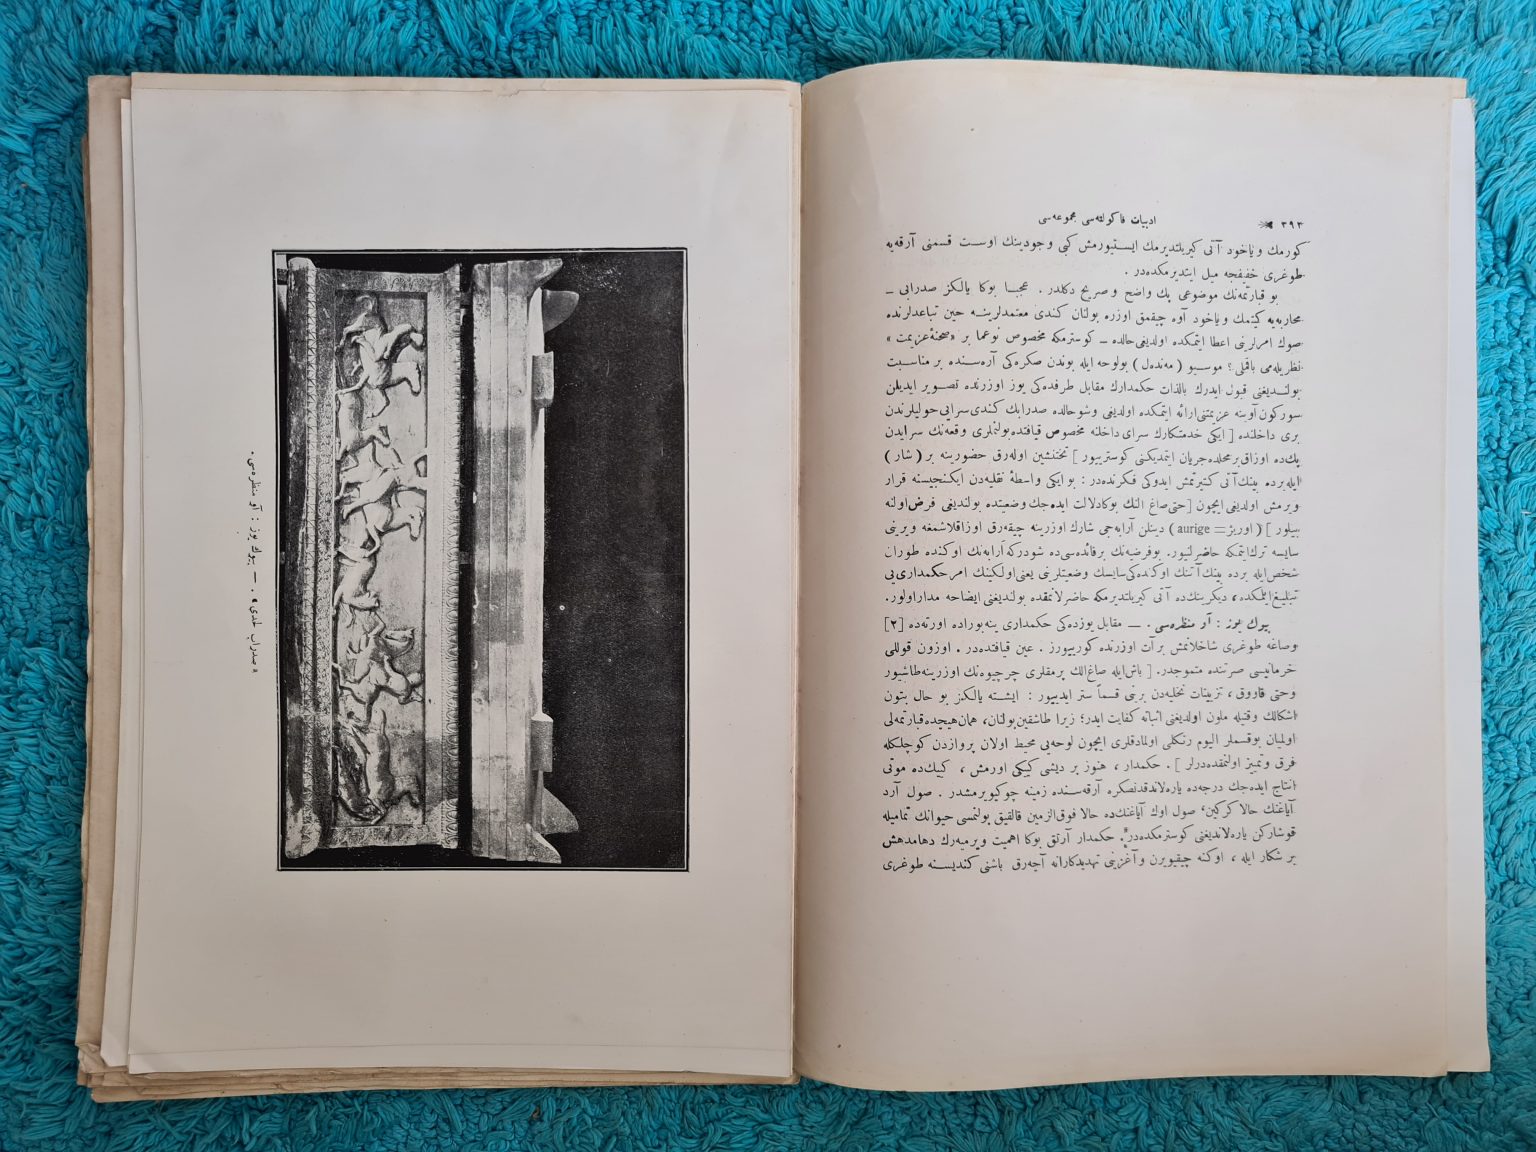 ٣٩٣
ادبيات فاكولته‌سى مجموعه‌سى
كورمك وياخود آتى كيريلتديرمك ايستيورمش كبى وجودينك اوست قسمنى آرقه‌يه
طوغرى خفيفجه ميل ايتديرمكده‌در .
بو قبارتمه‌نك موضوعى پك واضح و صريح دكلدر . عجبا بوكا يالكز صدرابى ــ
محاربه‌يه كيتمك وياخود آوه چيقمق اوزره بولنان كندى معتمدلرينه حين تباعدلرنده
صوك امرلرينى اعطا ايتمكده اولديغى حالده ــ كوسترمكه مخصوص نوعما بر «صحنهٔ عزيمت»
نظريله‌مى باقملى ؟ موسيو ( مه‌نده‌ل ) بولوحه ايله بوندن صكره‌كى آره‌سنده بر مناسبت
بولنديغنى قبول ايدرك بالذات حكمدارك مقابل طرفده‌كى يوز اوزرنده تصوير ايديلن
سوركون آوينه عزيمتنى ارائه ايتمكده اولديغى وشو حالده صدرابك كندى سرايى حوليلرندن
برى داخلنده [ ايكى خدمتكارك سراى داخلنه مخصوص قيافتده بولنملرى وقعه‌نك سرايدن
پك‌ده اوزاق بر محلده جريان ايتمديكنى كوستريبور ] تختنشين اوله‌رق حضورينه بر ( شار )
ايله برده بينك آتى كتيرتمش ايدوكى فكرنده‌در : بو ايكى واسطهٔ نقليه‌دن ايكنجيسنه قرار
ويرمش اولديغى ايچون [ حتى صاغ الك بوكا دلالت ايده‌جك وضعيتده بولنديغى فرض اولنه
بيلور ] ( اوريژ = aurige ) دينلن آرابه‌جى شارك اوزرينه چيقه‌رق اوزاقلاشمغه ويرينى
سايسه ترك ايتمكه حاضرلنيور. بو فرضيه‌نك برفائده‌سى‌ده شودركه آرابه‌نك اوكنده طوران
شخص ايله برده بينك آتنك اوكنده‌كى سايسك وضعيتلرينى يعنى اولكينك امر حكمدارى‌يى
تبليغ ايتمكده، ديكرينك‌ده آتى كيريلتديرمكه حاضرلانمقده بولنديغنى ايضاحه مدار اولور.
بيوك يوز : آو منظره‌سى . ــ مقابل يوزده‌كى حكمدارى ينه بوراده اورته‌ده [٢]
وصاغه طوغرى شاخلانمش بر آت اوزرنده كورييورز . عين قيافتده‌در . اوزون قوللى
خرمانيسى صرتنده متموجدر. [ باش ايله صاغ الك پرمقلرى چرچيوه‌نك اوزرينه طاشيور
وحتى قاروق ، تزيينات نخليه‌دن برنى قسماً ستر ايديبور : ايشته يالكز بو حال بتون
اشكالك وقتيله ملون اولديغنى اثباته كفايت ايدر؛ زيرا طاشقين بولنان، همان هيچده قبارتمه‌لى
اولميان بو قسملر اليوم رنكلى اولمادقلرى ايچون لوحه‌يى محيط اولان پروازدن كوچلكله
فرق وتمييز اولنمقده‌درلر ] . حكمدار ، هنوز بر ديشى كيكى اورمش ، كييك‌ده موتى
انتاج ايده‌جك درجه‌ده ياره‌لاندقدنصكره آرقه‌سنده زمينه چوكيويرمشدر . صول آرد
آياغنك حالا كركين، صول اوك آياغنك‌ده حالا فوق الزمين قالقيق بولنمسى حيوانك تماميله
قوشاركن ياره‌لانديغنى كوسترمكده‌در. حكمدار آرتق بوكا اهميت ويرميه‌رك دها مدهش
بر شكار ايله ، اوكنه چيقيويرن و آغزينى تهديدكارانه آچه‌رق باشنى كنديسنه طوغرى
«صدراب لحدى» . ــ بيوك يوز : آو منظره‌سى .